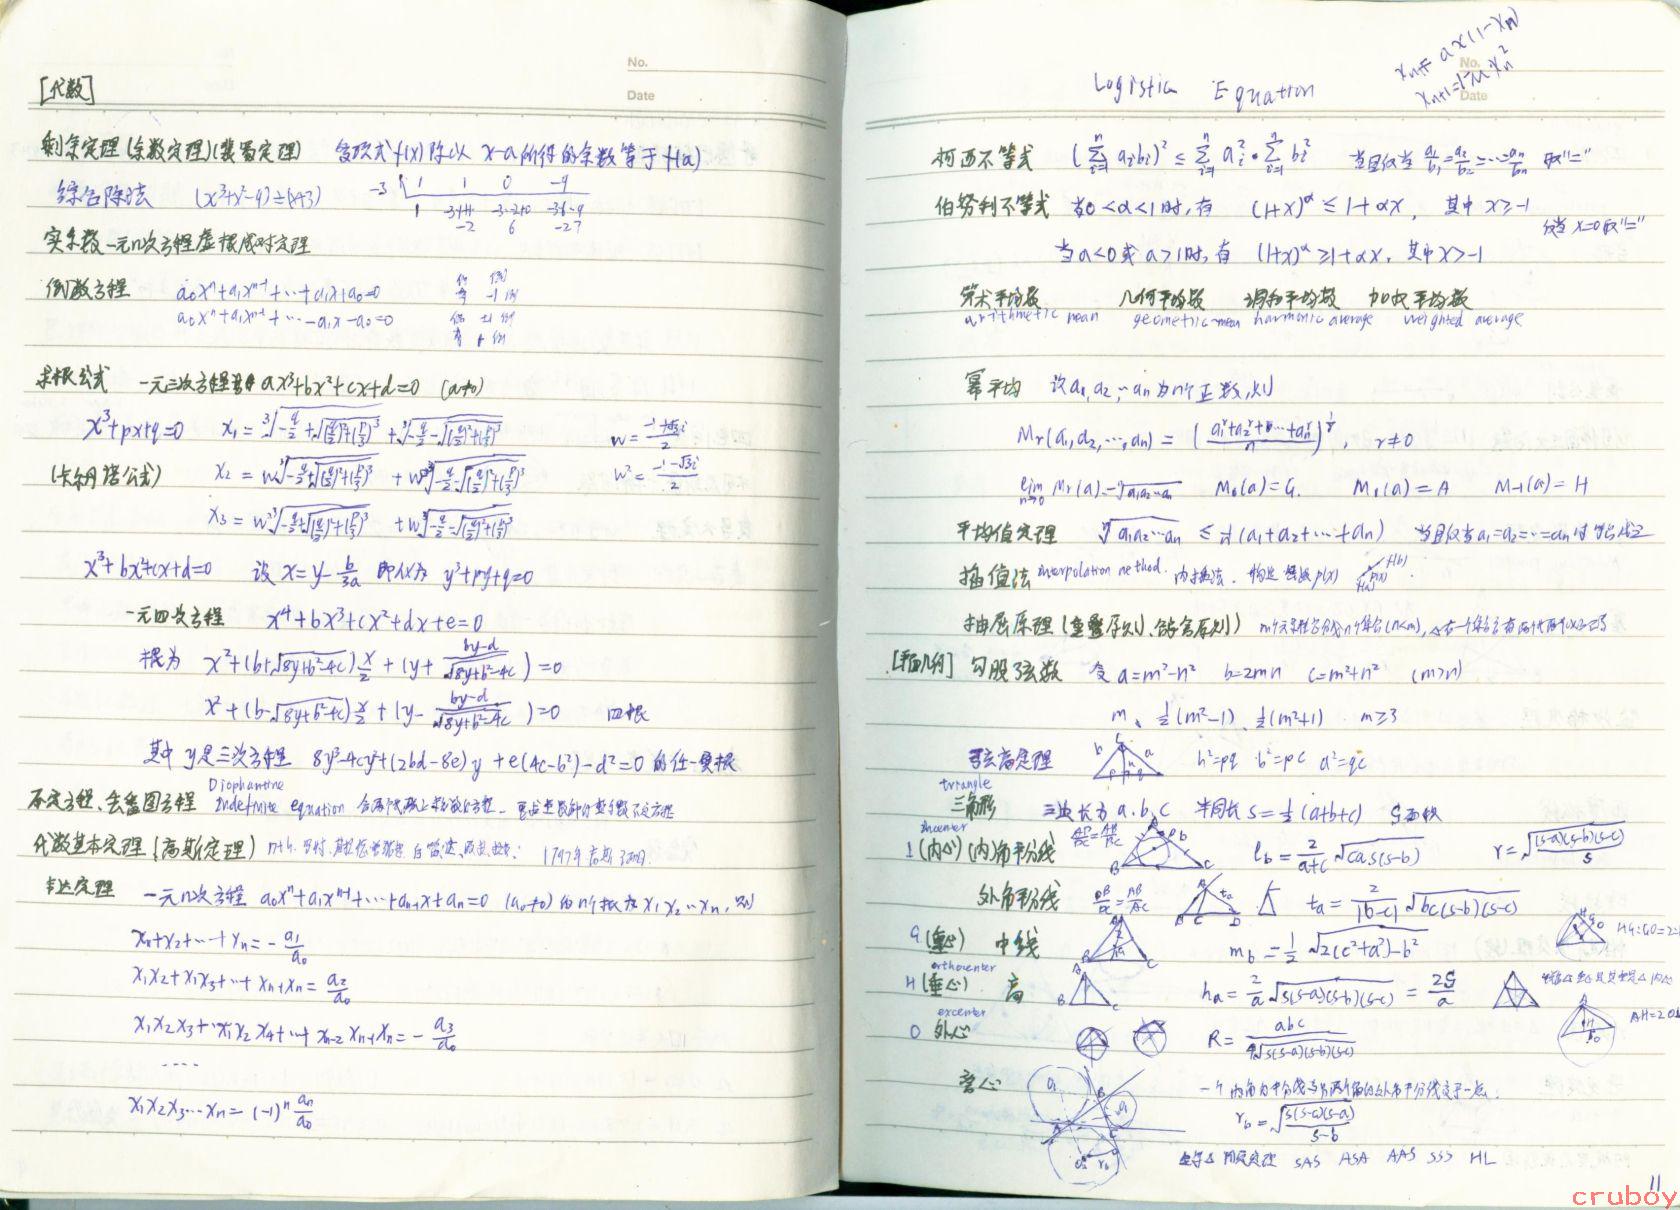 No.
Date
[代数]
剩余定理(余数定理)(裴蜀定理) 多项式f(x)除以 x-a 所得的余数等于f(a)
综合除法 (x³+x²-9)÷(x+3) -3 1 1 0 -9
1 -3+1 -3·-2+0 -3·6-9
-2 6 -27
实系数一元n次方程虚根成对定理
倒数方程 a₀xⁿ+a₁xⁿ⁻¹+…+a₁x+a₀=0
奇 -1 例
a₀xⁿ+a₁xⁿ⁻¹+…-a₁x-a₀=0 偶 ±1 例
奇 1 例
求根公式 一元三次方程 ax³+bx²+cx+d=0 (a≠0)
x³+px+q=0 x₁=∛(-q/2+√((q/2)²+(p/3)³))+∛(-q/2-√((q/2)²+(p/3)³)) w=(-1+√3i)/2
(卡尔丹诺公式) x₂=w∛(-q/2+√((q/2)²+(p/3)³))+w²∛(-q/2-√((q/2)²+(p/3)³)) w²=(-1-√3i)/2
x₃=w²∛(-q/2+√((q/2)²+(p/3)³))+w∛(-q/2-√((q/2)²+(p/3)³))
x³+bx²+cx+d=0 设 x=y-b/3a 即化为 y³+py+q=0
一元四次方程 x⁴+bx³+cx²+dx+e=0
根为 x²+(b+√(8y+b²-4c))x/2+(y+(by-d)/√(8y+b²-4c))=0
x²+(b-√(8y+b²-4c))x/2+(y-(by-d)/√(8y+b²-4c))=0 四根
其中 y是三次方程 8y³-4cy²+(2bd-8e)y+e(4c-b²)-d²=0 的任一实根
Diophantine
不定方程、丢番图方程 Indefinite equation
代数基本定理(高斯定理) 1797年高斯
韦达定理 一元n次方程 a₀xⁿ+a₁xⁿ⁻¹+…+aₙ₋₁x+aₙ=0 (a₀≠0) 的n个根为 x₁x₂…xₙ, 则
x₁+x₂+…+xₙ=-a₁/a₀
x₁x₂+x₁x₃+…+xₙ₋₁xₙ=a₂/a₀
x₁x₂x₃+x₁x₂x₄+…+xₙ₋₂xₙ₋₁xₙ=-a₃/a₀
....
x₁x₂x₃…xₙ=(-1)ⁿaₙ/a₀
No.
Date
Logistic Equation
xₙ₊₁=ax(1-xₙ)
xₙ₊₁=1-μxₙ²
柯西不等式 (Σaᵢbᵢ)²≤Σaᵢ²·Σbᵢ² 当且仅当 a₁/b₁=a₂/b₂=…=aₙ/bₙ 取"="
伯努利不等式 当0<α<1时,有 (1+x)^α≤1+αx, 其中 x≥-1
仅当 x=0取"="
当α<0或α>1时,有 (1+x)^α≥1+αx, 其中x>-1
算术平均数 几何平均数 调和平均数 加权平均数
arithmetic mean geometric mean harmonic average weighted average
幂平均 设a₁,a₂,…aₙ为n个正数,则
Mr(a₁,a₂,…,aₙ)=((a₁ʳ+a₂ʳ+…+aₙʳ)/n)^(1/r), r≠0
lim Mr(a)=ⁿ√(a₁a₂…aₙ) M₀(a)=G. M₁(a)=A M₋₁(a)=H
平均值定理 ⁿ√(a₁a₂…aₙ)≤1/n(a₁+a₂+…+aₙ) 当且仅当a₁=a₂=…=aₙ时等号成立
插值法 interpolation method. 内插法. 构造函数p(x) f(b) p(x) f(a)
抽屉原理(重叠原则、鸽舍原则)
[平面几何] 勾股弦数 令 a=m²-n² b=2mn c=m²+n² (m>n)
m、½(m²-1)、½(m²+1) m≥3
弦高定理 h²=pq b²=pc a²=qc
triangle
三角形 三边长为 a.b.c 半周长 s=½(a+b+c) S面积
incenter
I (内心) (内)角平分线 t_b=2/(a+c)√(cas(s-b)) r=√((s-a)(s-b)(s-c)/s)
外角平分线 DB/DC=AB/AC t_a=2/|b-c|√(bc(s-b)(s-c))
G (重心) 中线 m_b=½√(2(c²+a²)-b²) HG:GO=2:1
orthocenter
H (垂心) 高 h_a=2/a√(s(s-a)(s-b)(s-c))=2S/a
excenter
O 外心 R=abc/(4√(s(s-a)(s-b)(s-c))) AH=2OM
旁心 一个内角内平分线与另两个角的外角平分线交于一点.
r_b=√(s(s-c)(s-a)/(s-b))
全等△ 判定定理 SAS ASA AAS SSS HL
11
cruboy